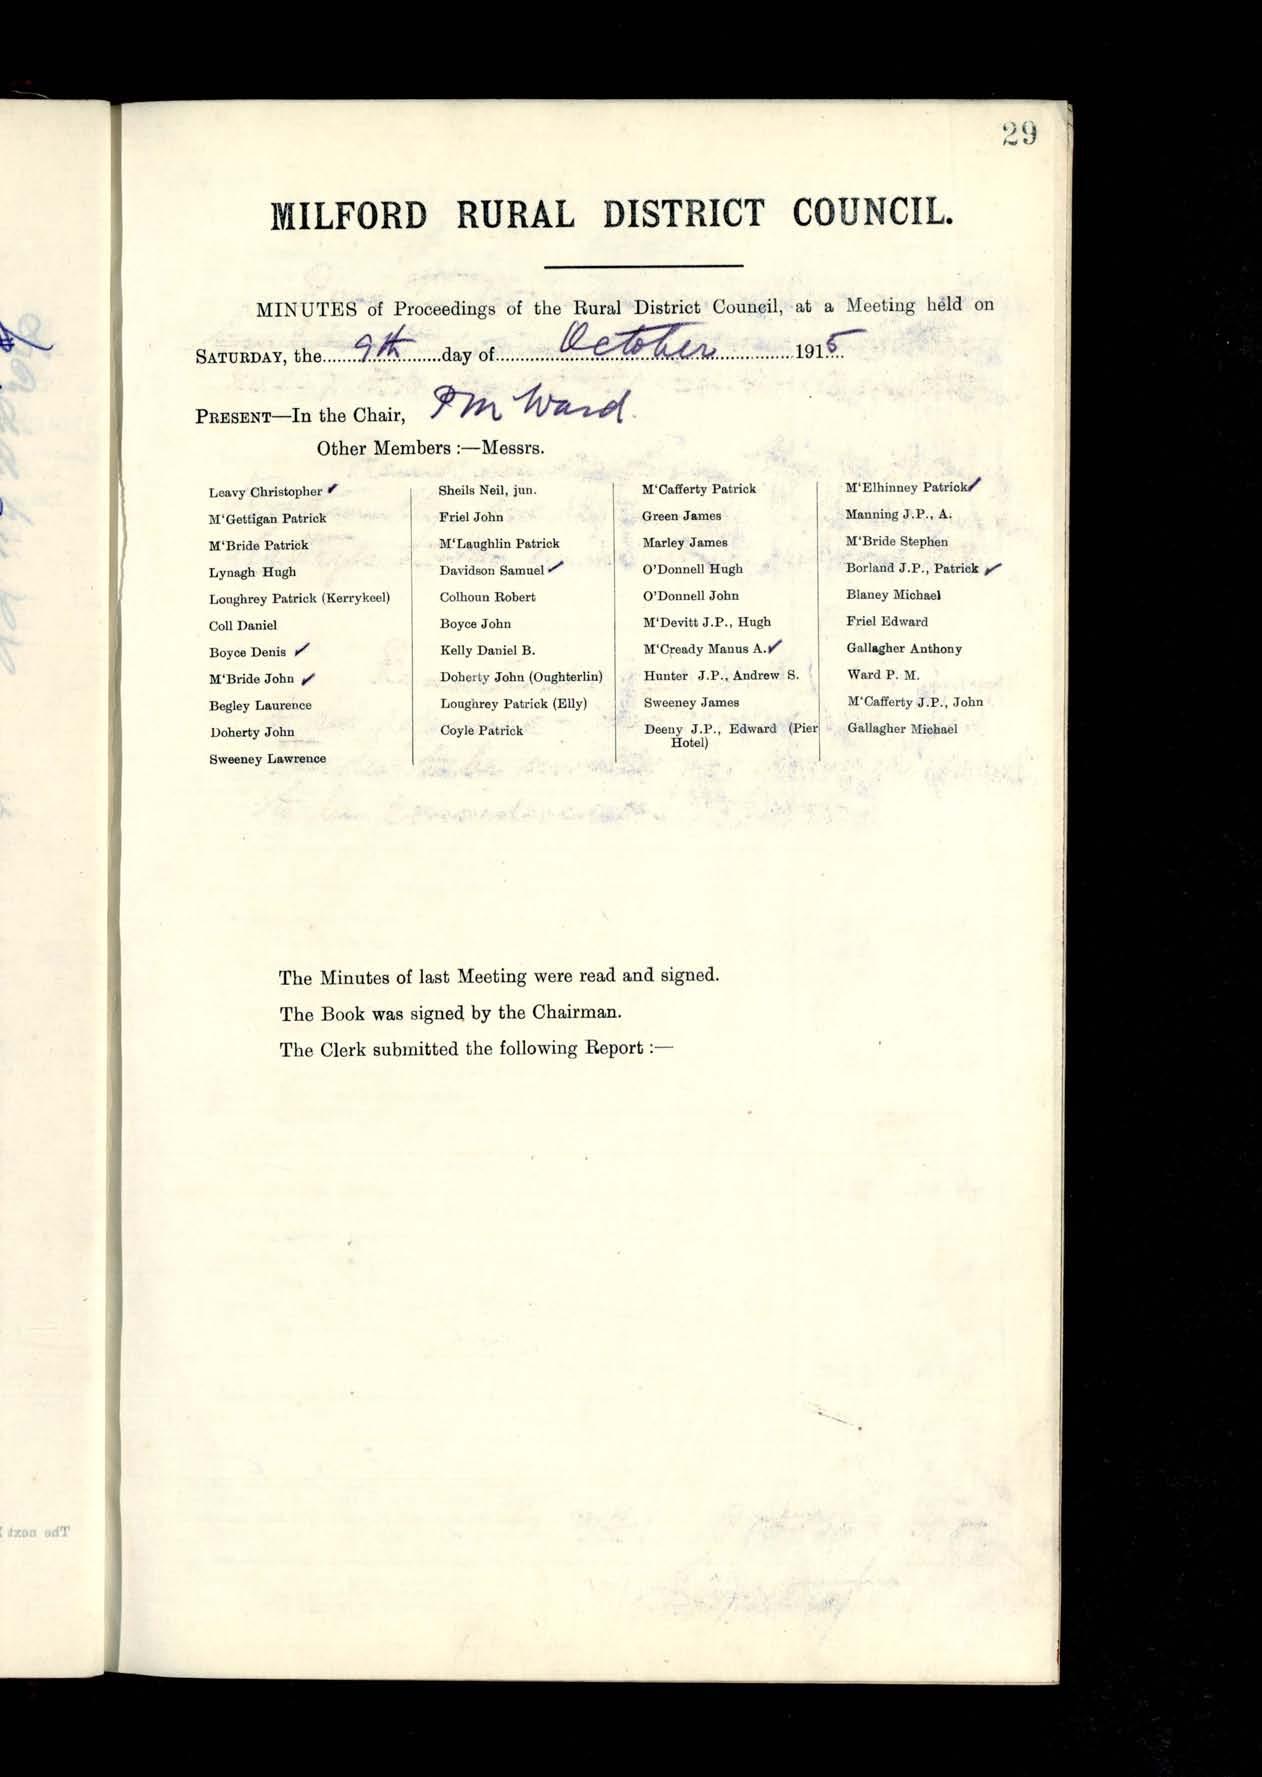 29
MILFORD RURAL DISTRICT COUNCIL.
MINUTES of Proceedings of the Rural District Council, at a Meeting held on
SATURDAY, the 9th day of October 1915
PRESENT—In the Chair, P M Ward.
Other Members :—Messrs.
Leavy Christopher ✓
M‘Gettigan Patrick
M‘Bride Patrick
Lynagh Hugh
Loughrey Patrick (Kerrykeel)
Coll Daniel
Boyce Denis ✓
M‘Bride John ✓
Begley Laurence
Doherty John
Sweeney Lawrence
Sheils Neil, jun.
Friel John
M‘Laughlin Patrick
Davidson Samuel ✓
Colhoun Robert
Boyce John
Kelly Daniel B.
Doherty John (Oughterlin)
Loughrey Patrick (Elly)
Coyle Patrick
M‘Cafferty Patrick
Green James
Marley James
O’Donnell Hugh
O’Donnell John
M‘Devitt J.P., Hugh
M‘Cready Manus A. ✓
Hunter J.P., Andrew S.
Sweeney James
Deeny J.P., Edward (Pier
Hotel)
M‘Elhinney Patrick ✓
Manning J.P., A.
M‘Bride Stephen
Borland J.P., Patrick ✓
Blaney Michael
Friel Edward
Gallagher Anthony
Ward P. M.
M‘Cafferty J.P., John
Gallagher Michael
The Minutes of last Meeting were read and signed.
The Book was signed by the Chairman.
The Clerk submitted the following Report :—
The next